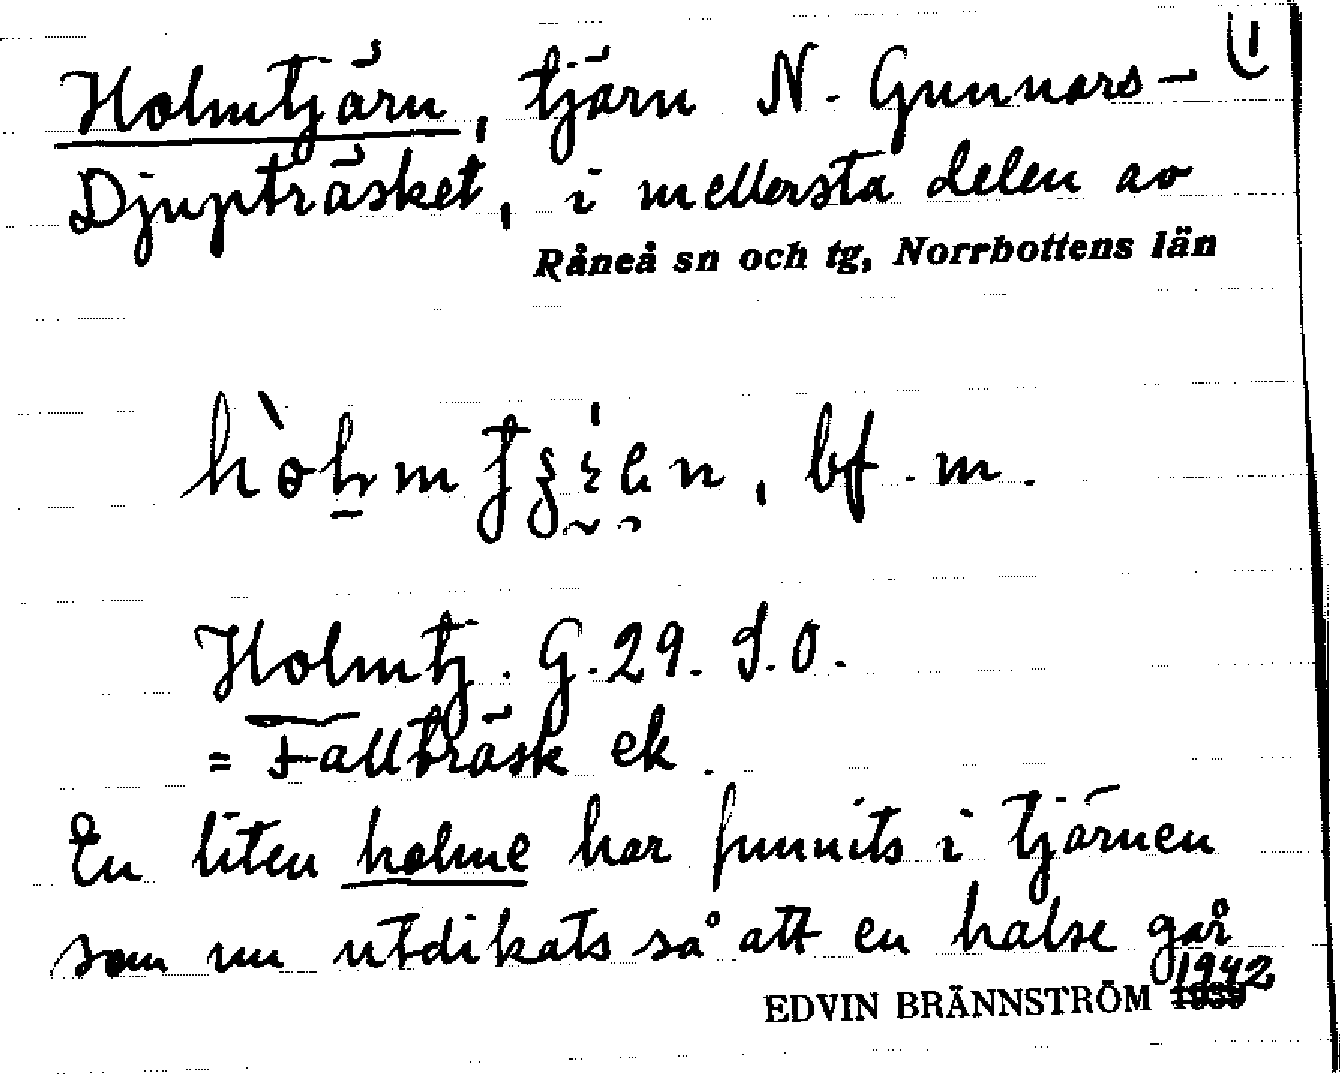 1
Holmtjärn, tjärn N. Gunnars-
Djupträsket, i mellersta delen av
Råneå sn och tg, Norrbottens län
bf. m.
Holmtj. G. 29. J.O.
= Fallträsk ek.
En liten holme har funnits i tjärnen
som nu utdikats så att en halse går
1942
EDVIN BRÄNNSTRÖM 1939